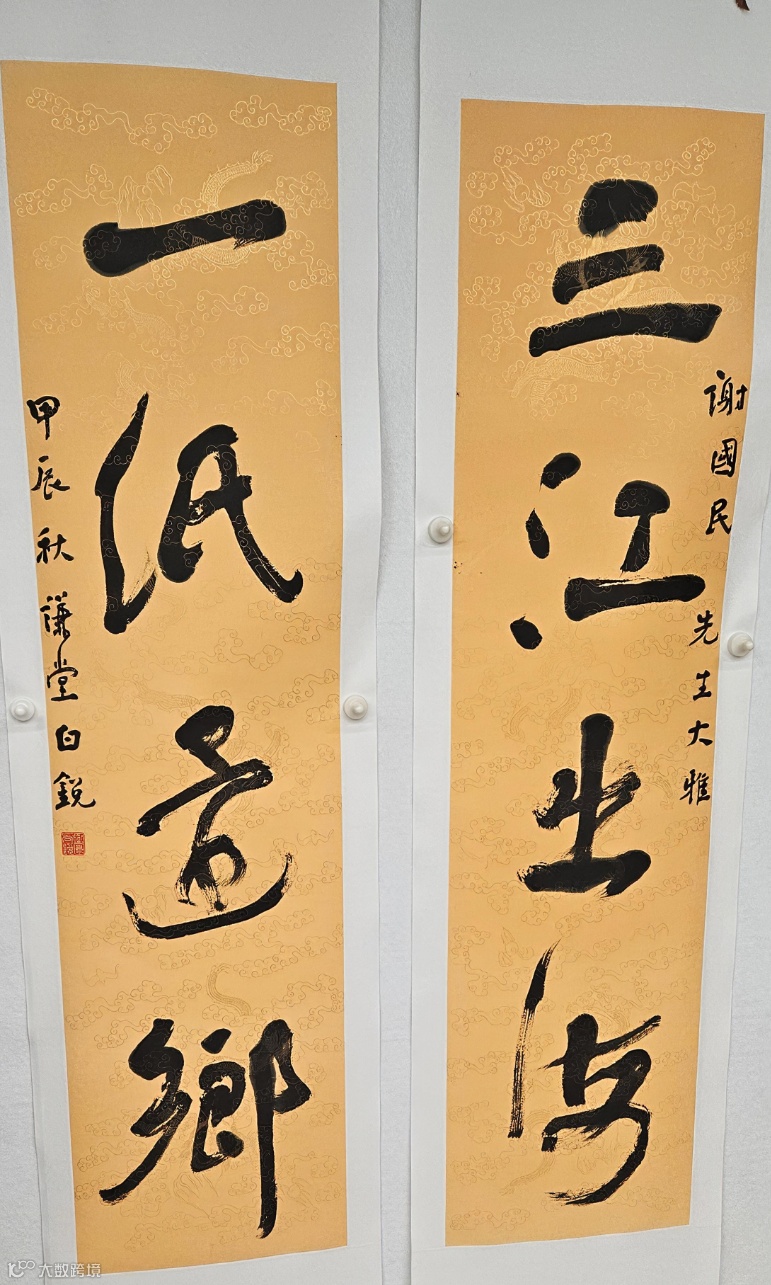 三江出海
謝國民 先生大雅
一紙還鄉
甲辰秋 謙堂白銳
大数跨境